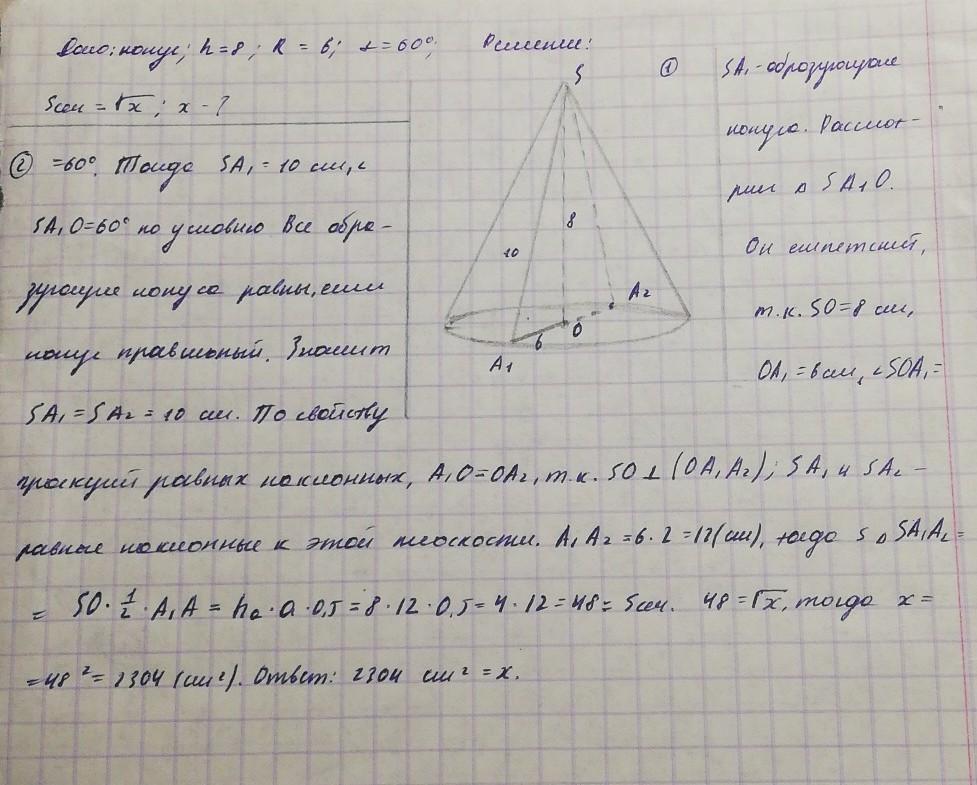 Дано: конус; h=8; R=6; α=60°;
Sсеч = √x; x - ?
Решение:
①
SA₁ - образующая
конуса. Рассмот-
рим Δ SA₁O.
Он египетский,
т.к. SO=8 см,
OA₁=6см, ∠SOA₁=
S
10
8
6
O
A₁
A₂
② =60°. Тогда SA₁ = 10 см, ∠
SA₁O=60° по условию Все обра-
зующие конуса равны, если
конус правильный. Значит
SA₁ = SA₂ = 10 см. По свойству
проекций равных наклонных, A₁O=OA₂, т.к. SO⊥(OA₁A₂); SA₁ и SA₂ -
равные наклонные к этой плоскости. A₁A₂=6·2=12(см), тогда S Δ SA₁A₂=
= SO·½·A₁A = hₐ·a·0,5=8·12·0,5=4·12=48=Sсеч. 48=√x, тогда x=
=48²=2304 (см²). Ответ: 2304 см²=x.